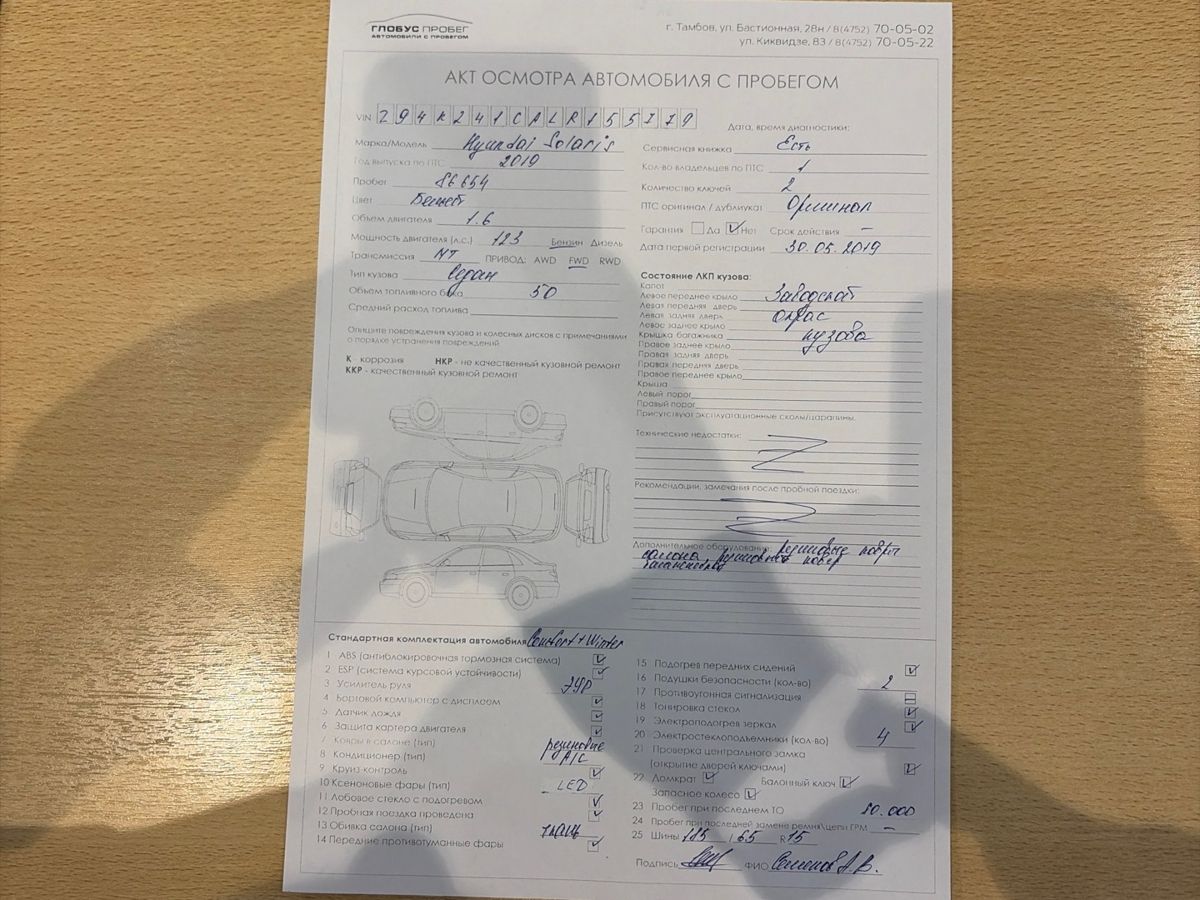 ГЛОБУС ПРОБЕГ
АВТОМОБИЛИ С ПРОБЕГОМ
г. Тамбов, ул. Бастионная, 28н / 8(4752) 70-05-02
ул. Киквидзе, 83 / 8(4752) 70-05-22
АКТ ОСМОТРА АВТОМОБИЛЯ С ПРОБЕГОМ
VIN
Дата, время диагностики:
Марка/Модель Hyundai Solaris
Год выпуска по ПТС 2019
Пробег 86654
Цвет
Объем двигателя 1.6
Мощность двигателя (л.с.) 123 Бензин Дизель
Трансмиссия ПРИВОД: AWD FWD RWD
Тип кузова Седан
Объем топливного бака 50
Средний расход топлива
Опишите повреждения кузова и колесных дисков с примечаниями
о порядке устранения повреждений
К - коррозия НКР - не качественный кузовной ремонт
ККР - качественный кузовной ремонт
Сервисная книжка Есть
Кол-во владельцев по ПТС 1
Количество ключей 2
ПТС оригинал / дубликат Оригинал
Гарантия Да Нет Срок действия –
Дата первой регистрации 30.05.2019
Состояние ЛКП кузова:
Капот
Левое переднее крыло Заводской
Левая передняя дверь
Левая задняя дверь окрас
Левое заднее крыло
Крышка багажника кузова
Правое заднее крыло
Правая задняя дверь
Правая передняя дверь
Правое переднее крыло
Крыша
Левый порог
Правый порог
Присутствуют эксплуатационные сколы/царапины.
Технические недостатки:
Рекомендации, замечания после пробной поездки:
Дополнительное оборудование: резиновые
салона
Стандартная комплектация автомобиля Comfort + Winter
1 ABS (антиблокировочная тормозная система)
2 ESP (система курсовой устойчивости)
3 Усилитель руля ЭУР
4 Бортовой компьютер с дисплеем
5 Датчик дождя
6 Защита картера двигателя
Ковры в салоне (тип) резиновые
8 Кондиционер (тип) A/C
9 Круиз-контроль
10 Ксеноновые фары (тип) LED
11 Лобовое стекло с подогревом
12 Пробная поездка проведена
13 Обивка салона (тип) ткань
14 Передние противотуманные фары
15 Подогрев передних сидений
16 Подушки безопасности (кол-во) 2
17 Противоугонная сигнализация
18 Тонировка стекол
19 Электроподогрев зеркал
20 Электростеклоподъемники (кол-во) 4
21 Проверка центрального замка
(открытие дверей ключами)
22 Домкрат Балонный ключ
Запасное колесо
23 Пробег при последнем ТО
24 Пробег при последней замене ремня\цепи ГРМ –
25 Шины 185 / 65 R 15
Подпись ФИО Семенов А.В.